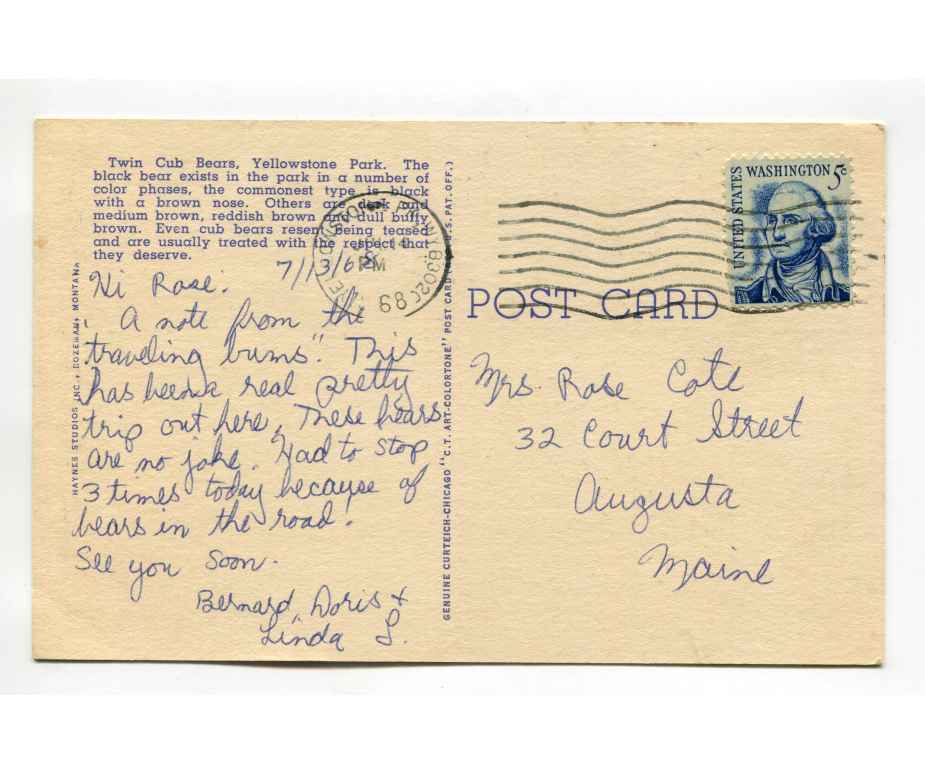 Twin Cub Bears, Yellowstone Park. The
black bear exists in the park in a number of
color phases, the commonest type is black
with a brown nose. Others are dark and
medium brown, reddish brown and dull buffy
brown. Even cub bears resent being teased
and are usually treated with the respect that
they deserve.
7/13/68
Hi Rose.
"A note from the
traveling bums". This
has been a real pretty
trip out here. These bears
are no joke. Had to stop
3 times today because of
bears in the road.
See you soon.
Bernard, Doris +
Linda L.
HAYNES STUDIOS INC., BOZEMAN, MONTANA
GENUINE CURTEICH-CHICAGO "C.T. ART-COLORTONE" POST CARD (REG. U.S. PAT. OFF.)
PM
68
UNITED STATES
WASHINGTON 5c
POST CARD
Mrs. Rose Cote
32 Court Street
Augusta
Maine